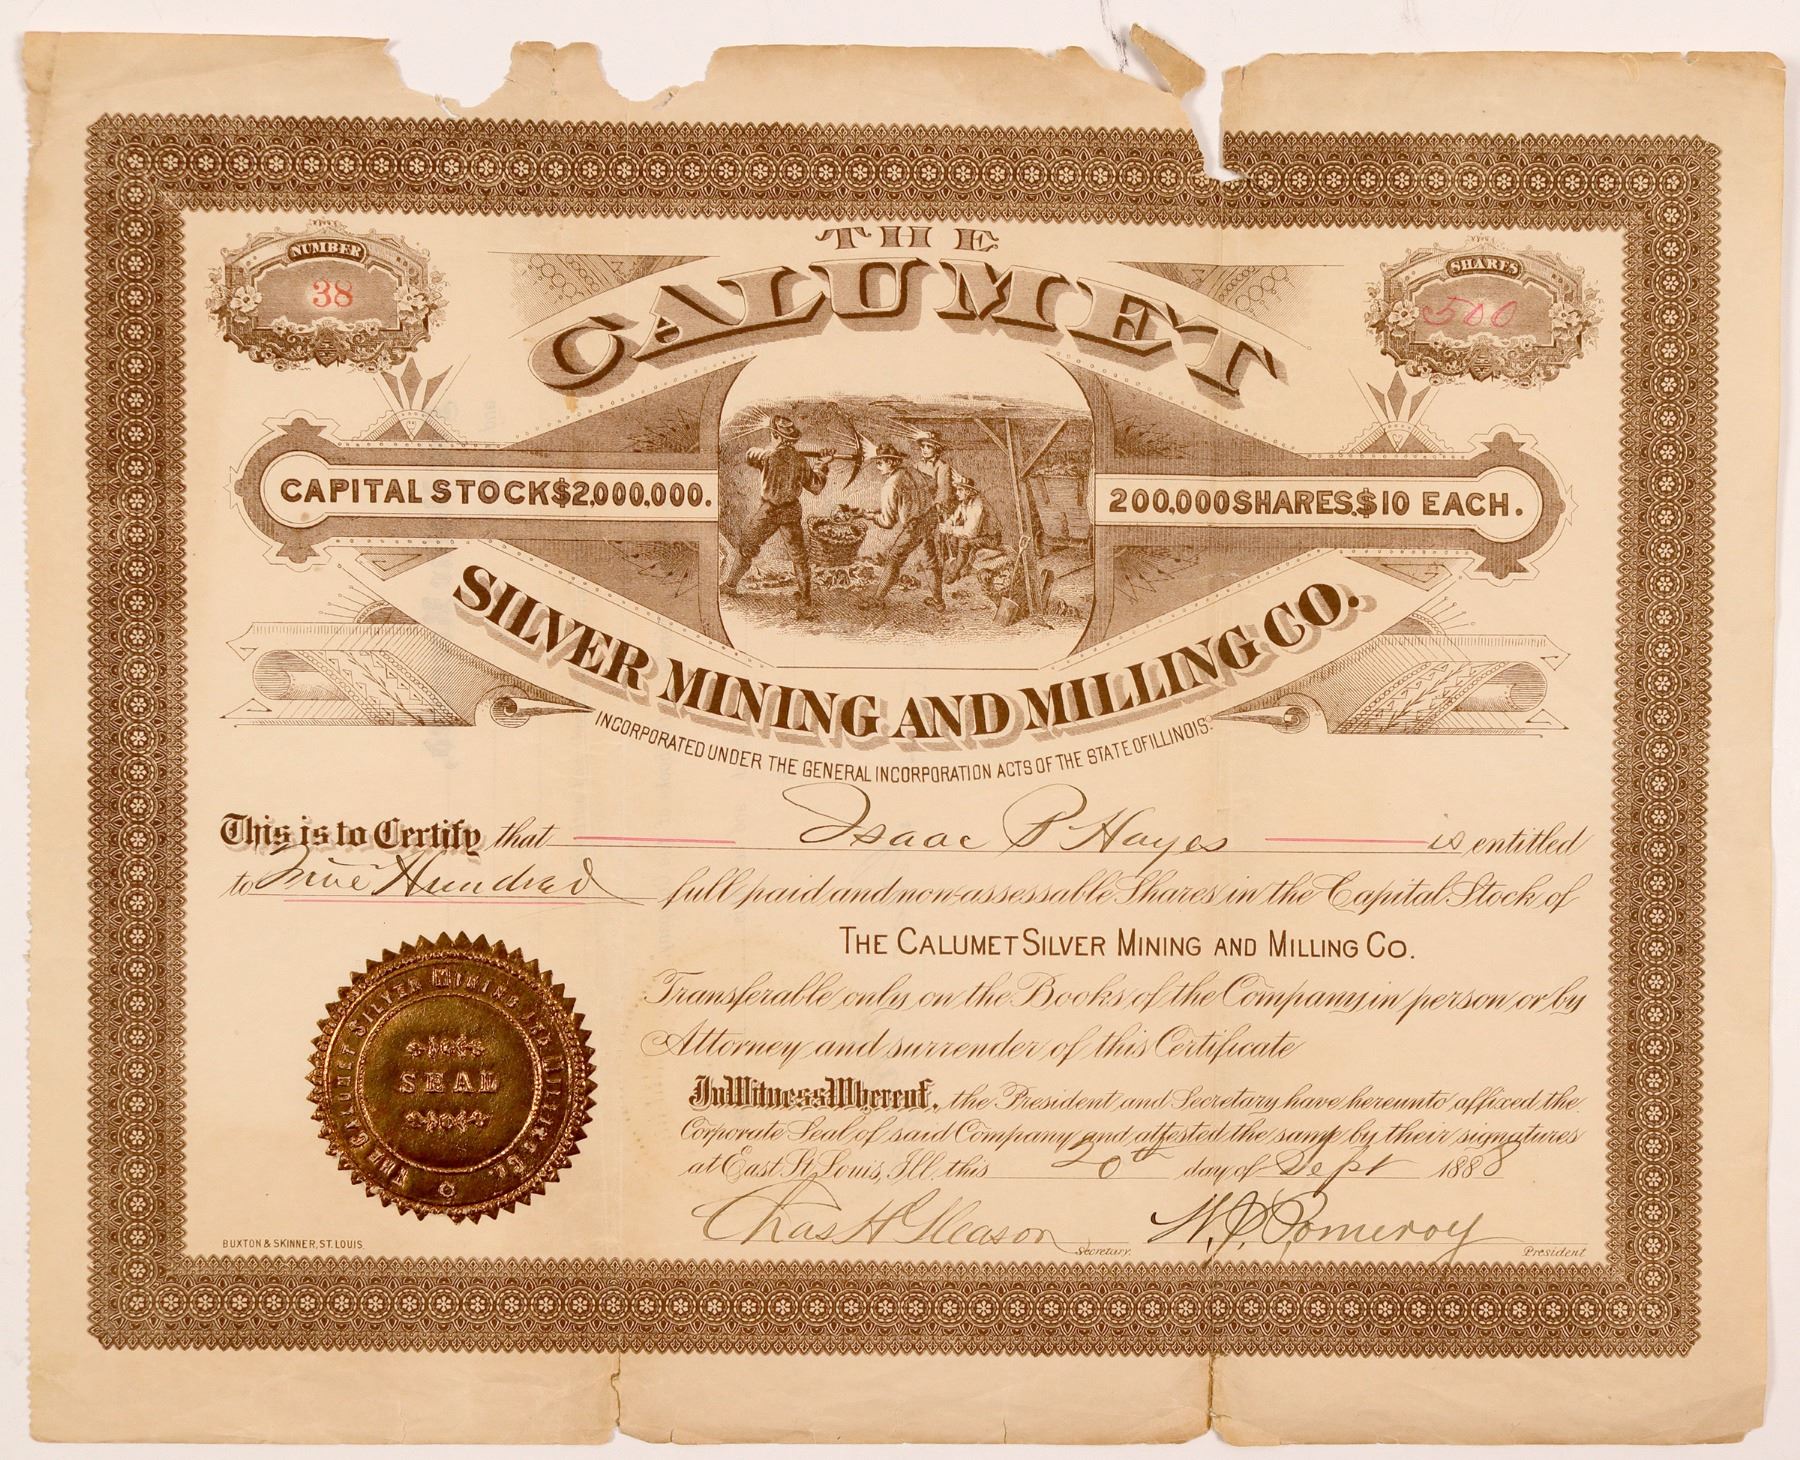 NUMBER
38
SHARES
500
THE
CALUMET
CAPITAL STOCK $2,000,000.
200,000 SHARES, $10 EACH.
SILVER MINING AND MILLING CO.
INCORPORATED UNDER THE GENERAL INCORPORATION ACTS OF THE STATE OF ILLINOIS.
This is to Certify that Isaac P Hayes is entitled
to Five Hundred full paid and non-assessable Shares in the Capital Stock of
THE CALUMET SILVER MINING AND MILLING CO.
Transferable only on the Books of the Company in person or by
Attorney and surrender of this Certificate
In Witness Whereof, the President and Secretary have hereunto affixed the
Corporate Seal of said Company and attested the same by their signatures
at East St. Louis, Ill. this 20th day of Sept 1888
Chas H Gleason Secretary. W. J. Pomeroy President
THE CALUMET SILVER MINING AND MILLING CO.
SEAL
BUXTON & SKINNER, ST. LOUIS